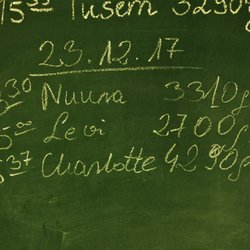 15 35 Tusem 3290g
23.12.17
30 Nuuna 3310g
00 Levi 2700g
37 Charlotte 4290g